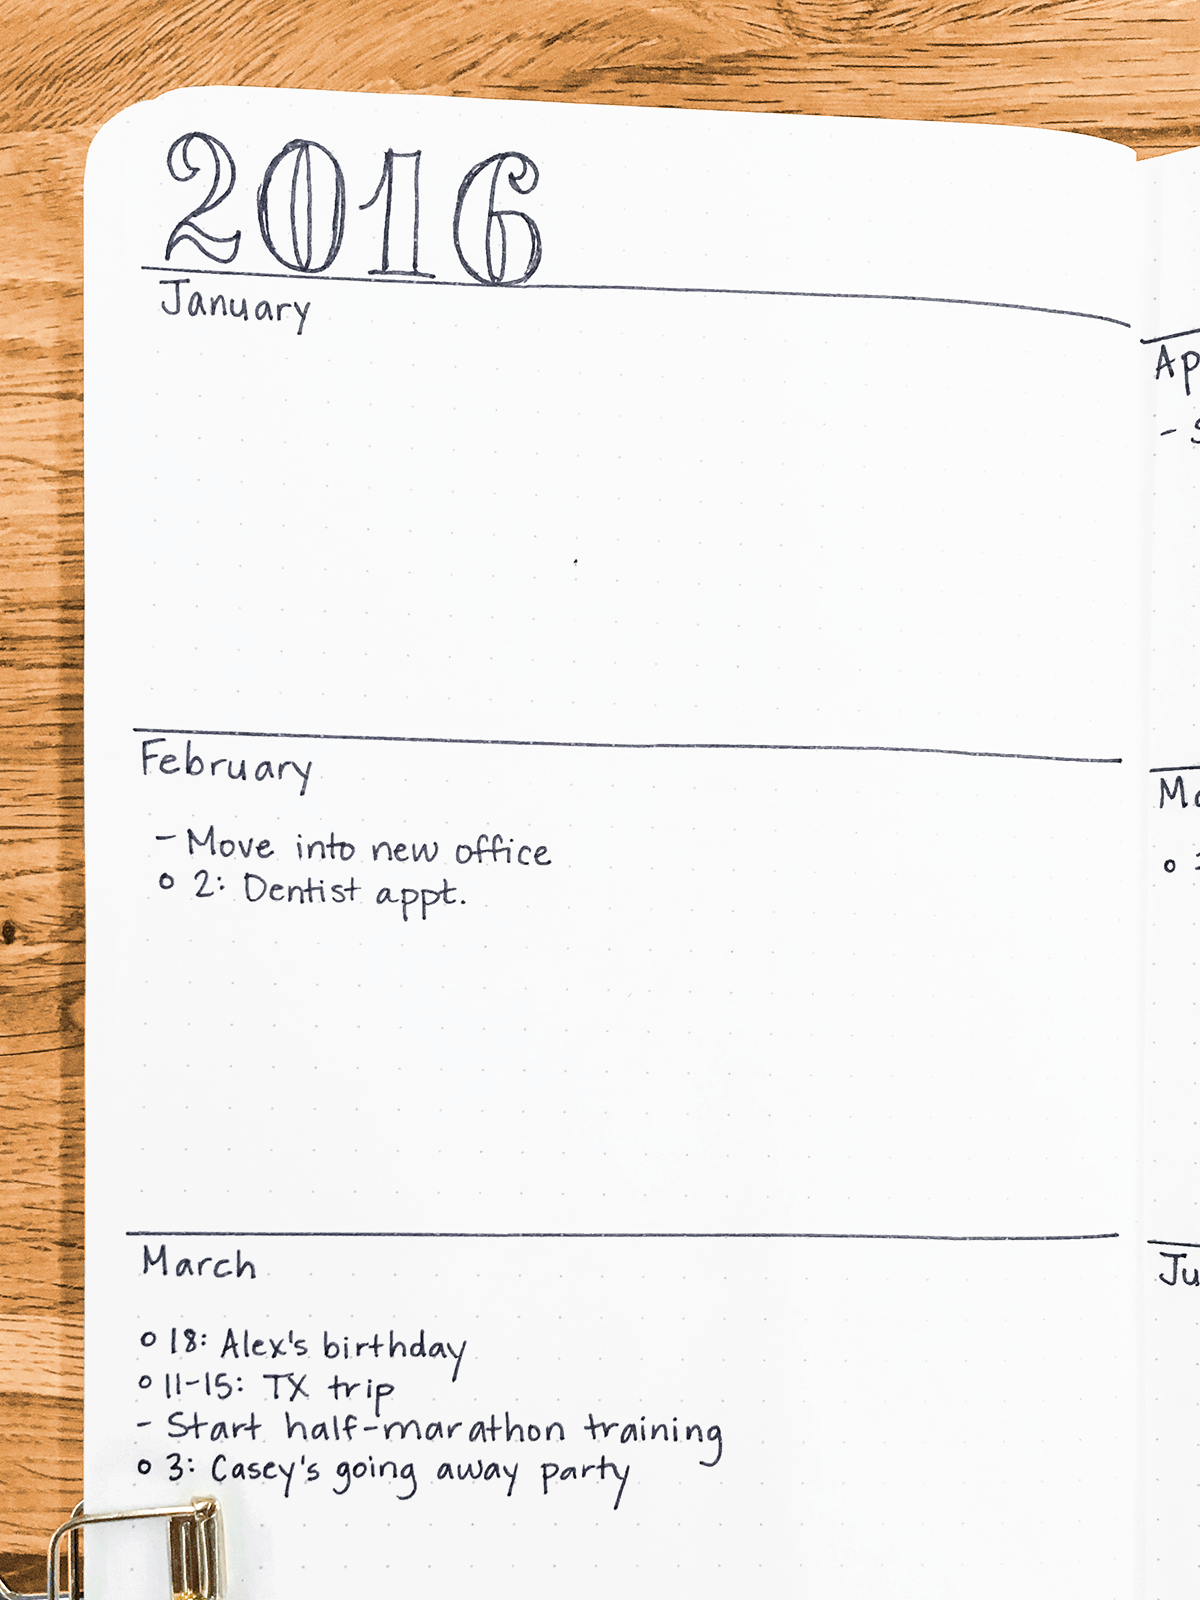 2016
January
February
- Move into new office
o 2: Dentist appt.
March
o 18: Alex's birthday
o 11-15: TX trip
- Start half-marathon training
o 3: Casey's going away party